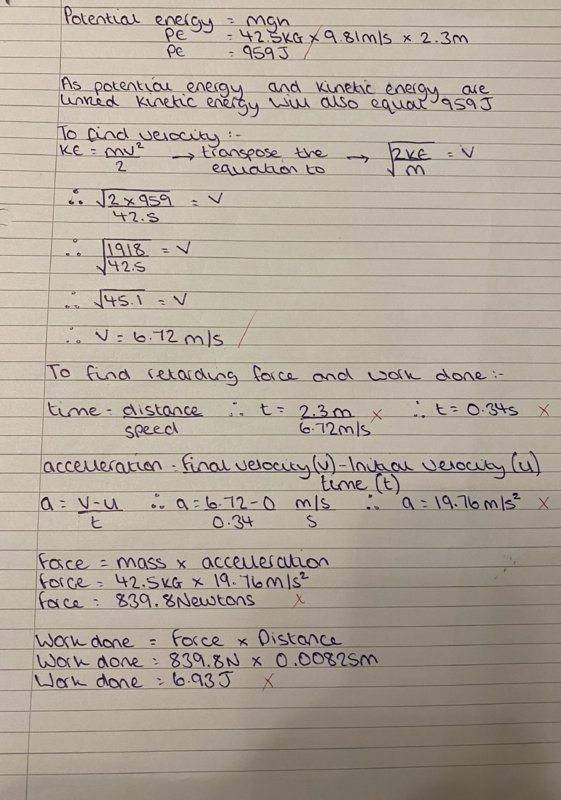 Potential energy = mgh
PE = 42.5KG × 9.81m/s × 2.3m
PE = 959J /
As potential energy and kinetic energy are
linked kinetic energy will also equal 959J
To find velocity :-
KE = mv²/2 → transpose the equation to → √2KE/m = V
∴ √2×959/42.5 = V
∴ √1918/42.5 = V
∴ √45.1 = V
∴ V = 6.72 m/s /
To find retarding force and work done :-
time = distance/speed ∴ t = 2.3m/6.72m/s × ∴ t = 0.34s ×
accelleration = final velocity(v) - Initial velocity (u)
time (t)
a = v-u/t ∴ a = 6.72-0/0.34 m/s/s ∴ a = 19.76m/s² ×
Force = mass × accelleration
force = 42.5KG × 19.76m/s²
force = 839.8Newtons ×
Work done = Force × Distance
Work done = 839.8N × 0.00825m
Work done = 6.93J ×